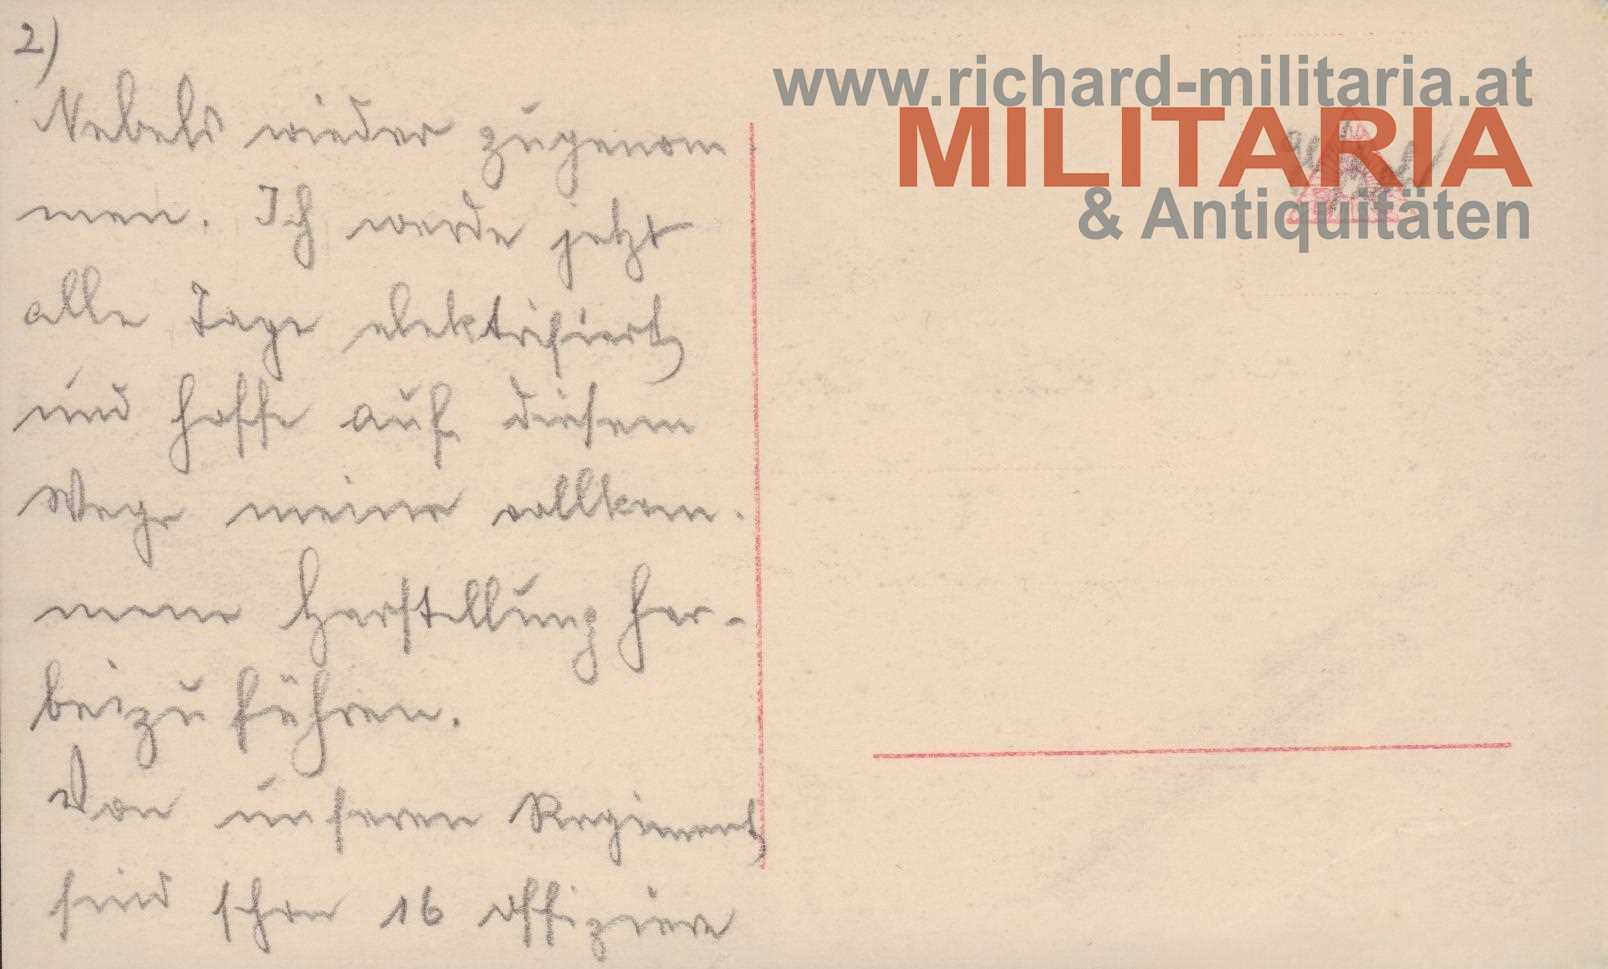 2)
Nebels wieder zugenom
men. Ich werde jetzt
alle Tage elektrisiert
und hoffe auf diesem
Wege meine vollkom-
mene Herstellung her-
beizuführen.
Von unseren Regiment
sind schon 16 Offiziere
www.richard-militaria.at
MILITARIA
& Antiquitäten